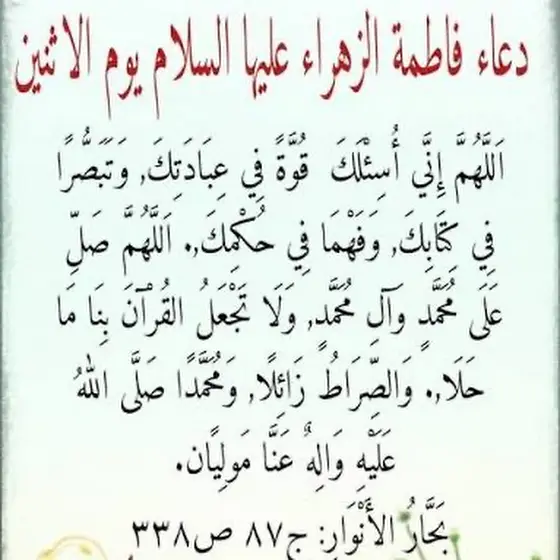 دعاء فاطمة الزهراء عليها السلام يوم الاثنين
اَللَّهُمَّ إِنَّي أُسِئْلَكَ قُوَّةً فِي عِبَادَتِكَ, وَتَبَصُّرًا
فِي كِتَابِكَ, وَفَهْمَا فِي حُكْمِكَ,. اَللَّهُمَّ صَلِّ
عَلَى مُحَمَّدٍ وَآلِ مُحَمَّدٍ, وَلَا تَجْعَلُ القُرْآنَ بِنَا مَا
حَلَا,. وَالصِّرَاطُ زَائِلًا, وَمُحَمَّدًا صَلَّى اللهُ
عَلَيْهِ وَالِهٌ عَنَّا مَولِيًان.
بَحَّارُ الأَنْوَارِ: ج٨٧ ص٣٣٨